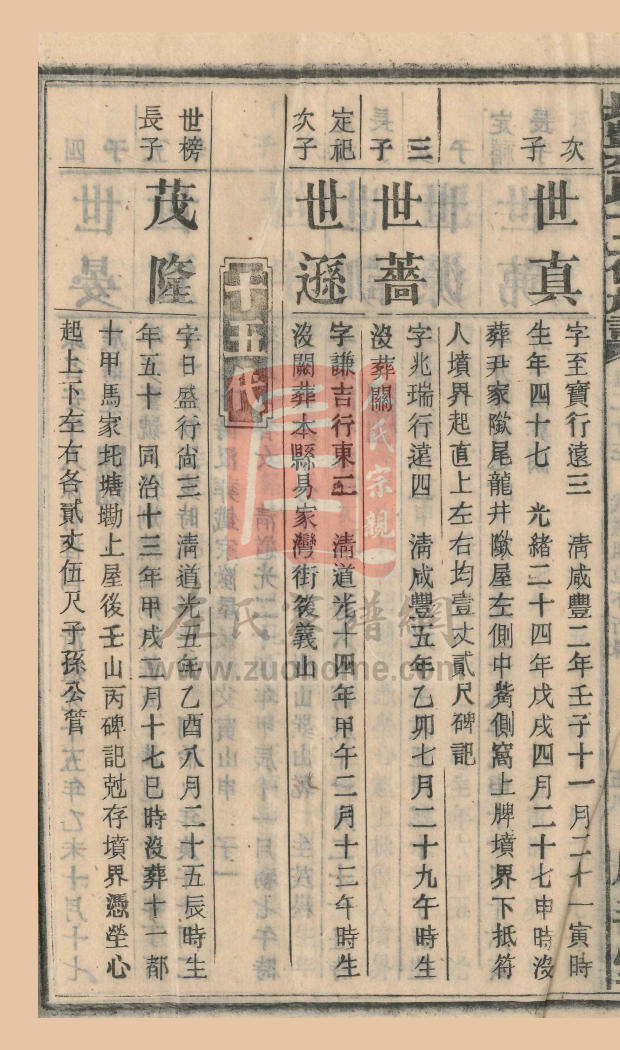 次子
世真
字至寶行遠三　清咸豐二年壬子十一月二十一寅時
生年四十七　光緒二十四年戊戌四月二十七申時沒
葬尹家隊尾龍井隊屋左側中嘴側窩上牌墳界下抵符
人墳界起直上左右均壹丈貳尺碑記
三子
世薔
字兆瑞行遠四　清咸豐五年乙卯七月二十九午時生
沒葬闕
定祀次子
世遜
字謙吉行東二　清道光十四年甲午二月十三午時生
沒闕葬本縣易家灣街後義山
十五代
世榜長子
茂隆
字日盛行尙三　清道光五年乙酉八月二十五辰時生
年五十　同治十三年甲戌二月十七巳時沒葬十一都
十甲馬家圫塘墈上屋後壬山丙碑記兙存墳界憑塋心
起上下左右各貳丈伍尺子孫公管
左氏宗親
左氏家譜網
www.zuohome.com